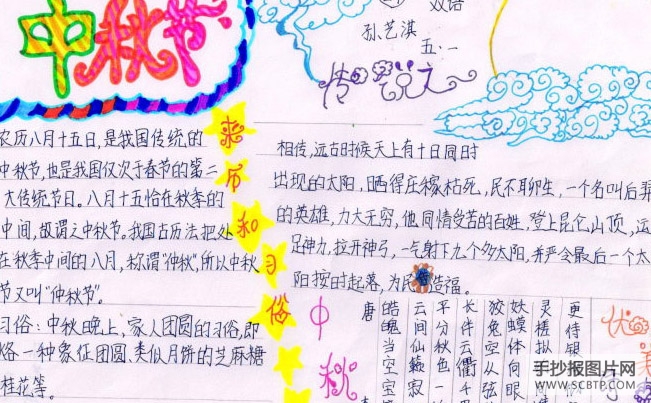 中秋节
双语
孙艺淇
五.一
传说之
农历八月十五日,是我国传统的
中秋节,也是我国仅次于春节的第二
大传统节日。八月十五恰在秋季的
中间,故谓之中秋节。我国古历法把处
在秋季中间的八月,称谓“仲秋”,所以中秋
节又叫“仲秋节”。
习俗:中秋晚上,家人团圆的习俗,即
烙一种象征团圆、类似月饼的芝麻糖
桂花等。
来历和习俗
相传,远古时候天上有十日同时
出现的太阳,晒得庄稼枯死,民不聊生,一个名叫后羿
的英雄,力大无穷,他同情受苦的百姓,登上昆仑山顶,运
足神力,拉开神弓,一气射下九个多太阳,并严令最后一个太
阳按时起落,为民造福。
中秋
唐
皓魄当空宝
云间仙籁寂
平分秋色一
长伴云衢千
狡兔空从弦
妖蟆休向眼
灵槎拟
更待银
手抄报图片网
WWW.SCBTP.COM